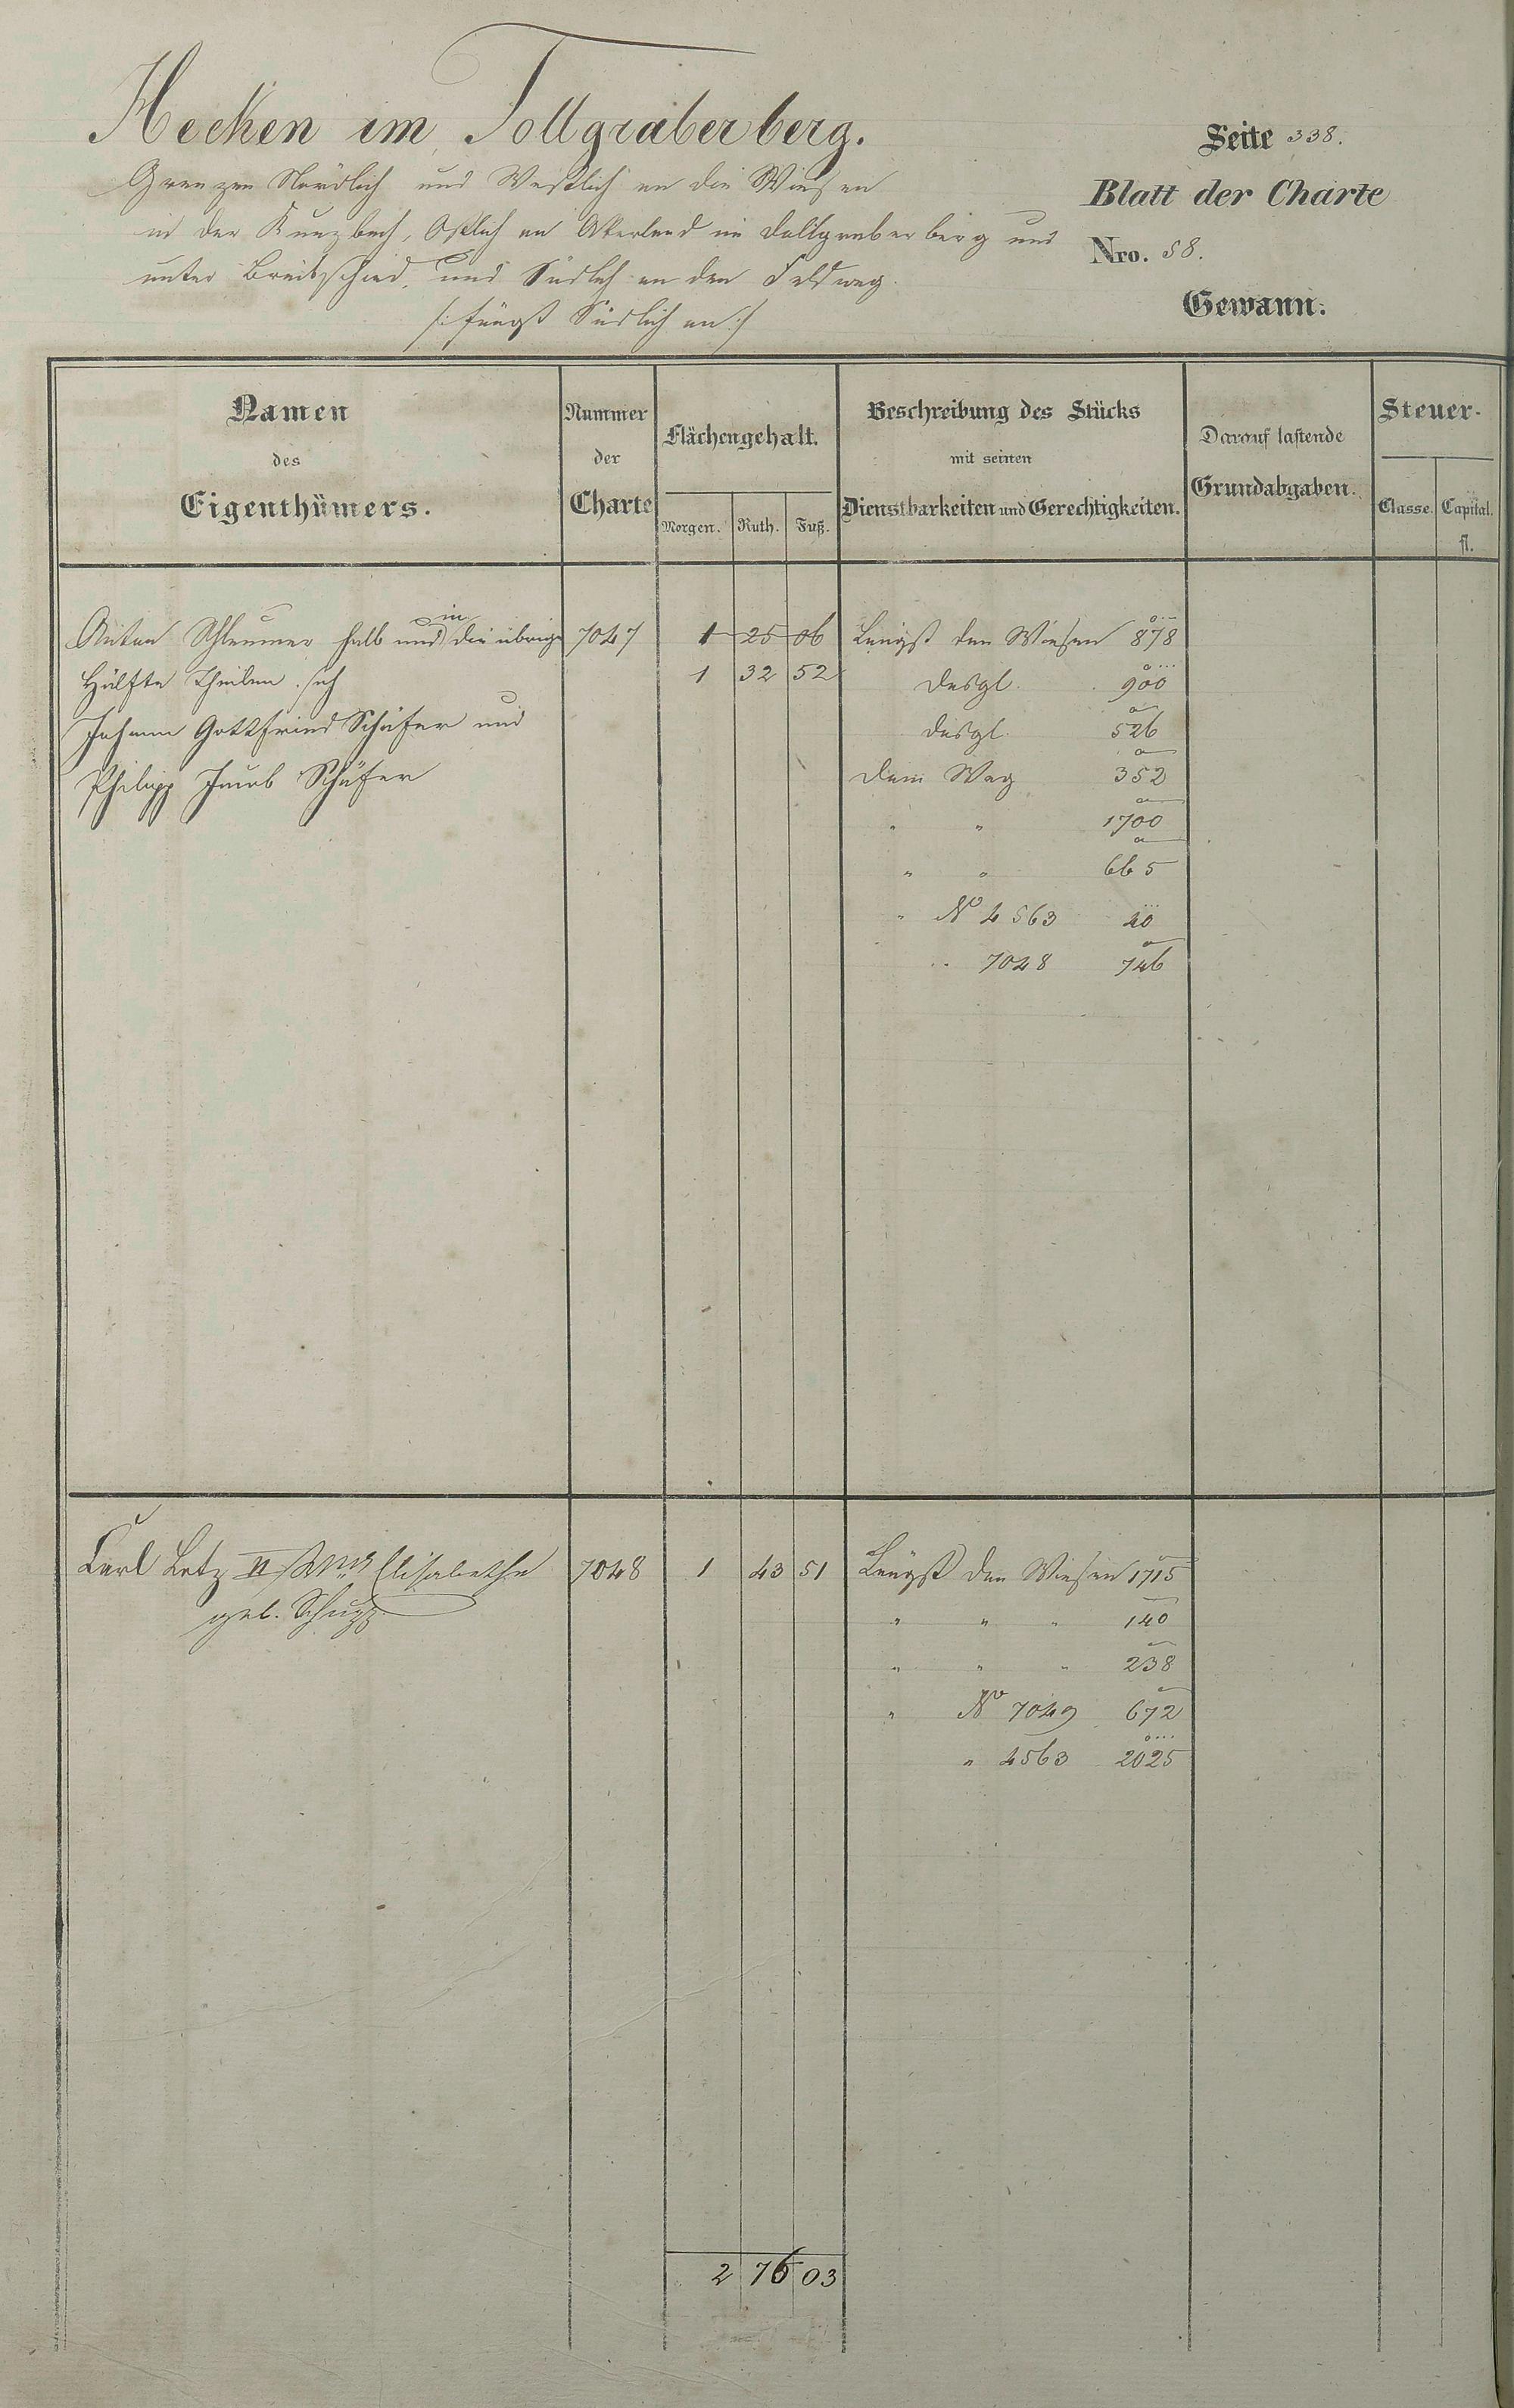 Hecken im Tollgraberberg.
Grenzen Nördlich und Westlich an die Wiesen
in der Kunzbach, Östlich an Akerland im Dollgraberberg und
unter Breitschied, und Südlich an den Feldweg.
/: fängt Südlich an :/
Seite 338.
Blatt der Charte
Nro. 58.
Gewann.
Namen des Eigenthümers.
Nummer der Charte
Flächengehalt.
Morgen. Ruth. Fuß.
Beschreibung des Stücks mit seinen Dienstbarkeiten und Gerechtigkeiten.
Darauf lastende Grundabgaben.
Steuer-
Classe. Capital. fl.
in
Anton Schleumer halb und die übrige 7047 1 25 06 Längst den Wiesen 878
Hälfte Theilen sich 1 32 52 desgl. 900
Johann Gottfried Schäfer und desgl. 526
Philipp Jacob Schäfer dem Weg 352
" " 1700
" " 665
" No 4563 40
" 7048 746
Carl Letz II Elisabetha 7048 1 43 51 Längst den Wiesen 1715
geb. Schupp " " " 140
" " " 238
" No 7049 672
" 4563 2025
2 76 03